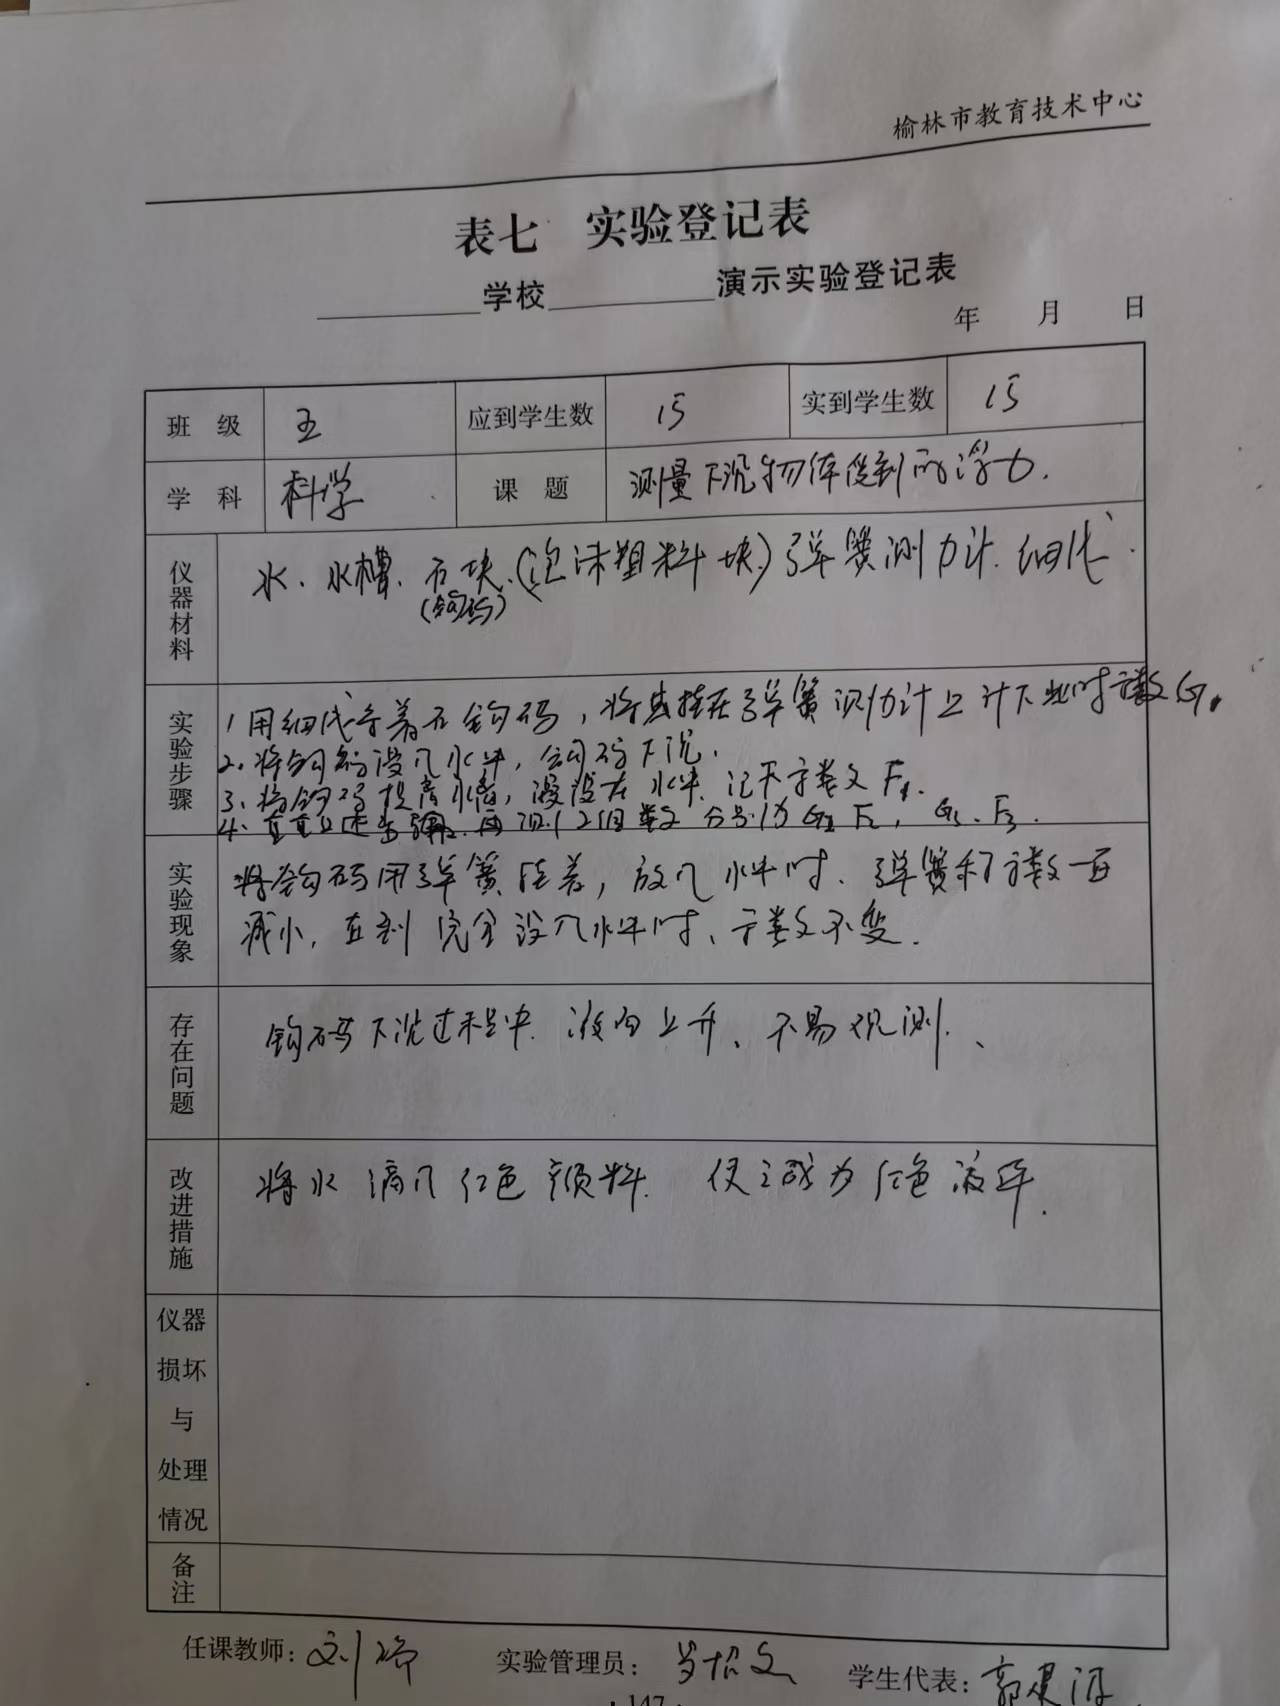 榆林市教育技术中心
表七 实验登记表
学校 演示实验登记表
年 月 日
班 级 五 应到学生数 15 实到学生数 15
学 科 科学 课 题 测量下沉物体受到的浮力.
仪器材料 水、水槽、石块、(泡沫塑料块)弹簧测力计、细线.
(钩码)
实验步骤
1 用细线 着 钩码,将 挂在弹簧测力计上 计下此时示数G1.
2、将钩码浸入水中,钩码下沉.
3、将钩码 水槽,浸没在水中、记下示数文F1.
4、重复上述步骤, 再测2组数 分别为G2 F2, G3、F3.
实验现象 将钩码用弹簧 着,放入水中时、弹簧称示数一直
减小,直到完全没入水中时、示数不变.
存在问题 钩码下沉过程中、液面上升、不易观测、
改进措施 将水滴入红色颜料、使之成为红色液体.
仪器损坏与处理情况
备注
任课教师: 刘 实验管理员: 文 学生代表: 郭建
· 147 ·